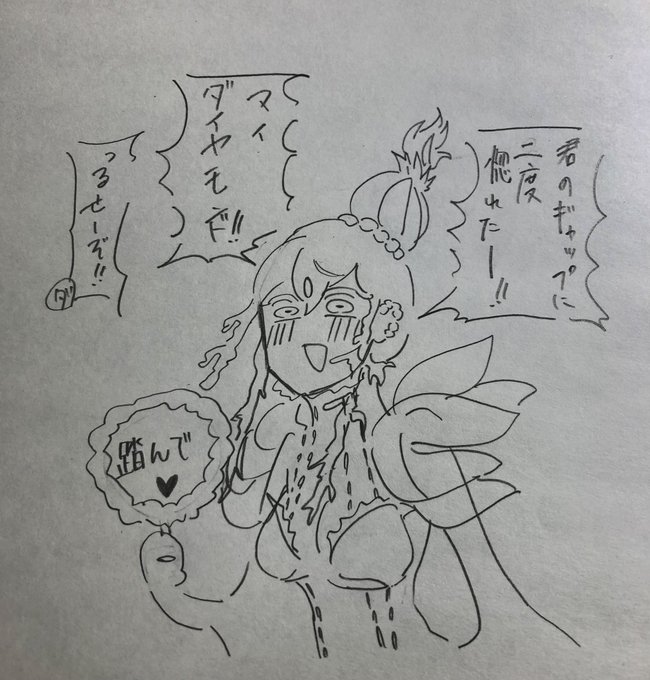 君のギャップに
二度
惚れたー!!
マイ
ダイヤモンド!!
うるせーぞ!!
ダ
踏んで♥